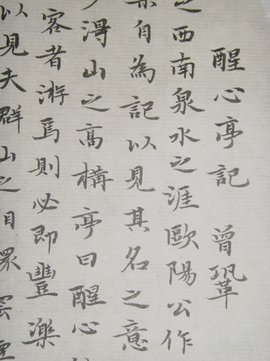 醒心亭記 曾鞏
之西南泉水之涯歐陽公作
樂自為記以見其名之意
得山之高構亭曰醒心
客者游焉則必即豐樂
以見夫群山之